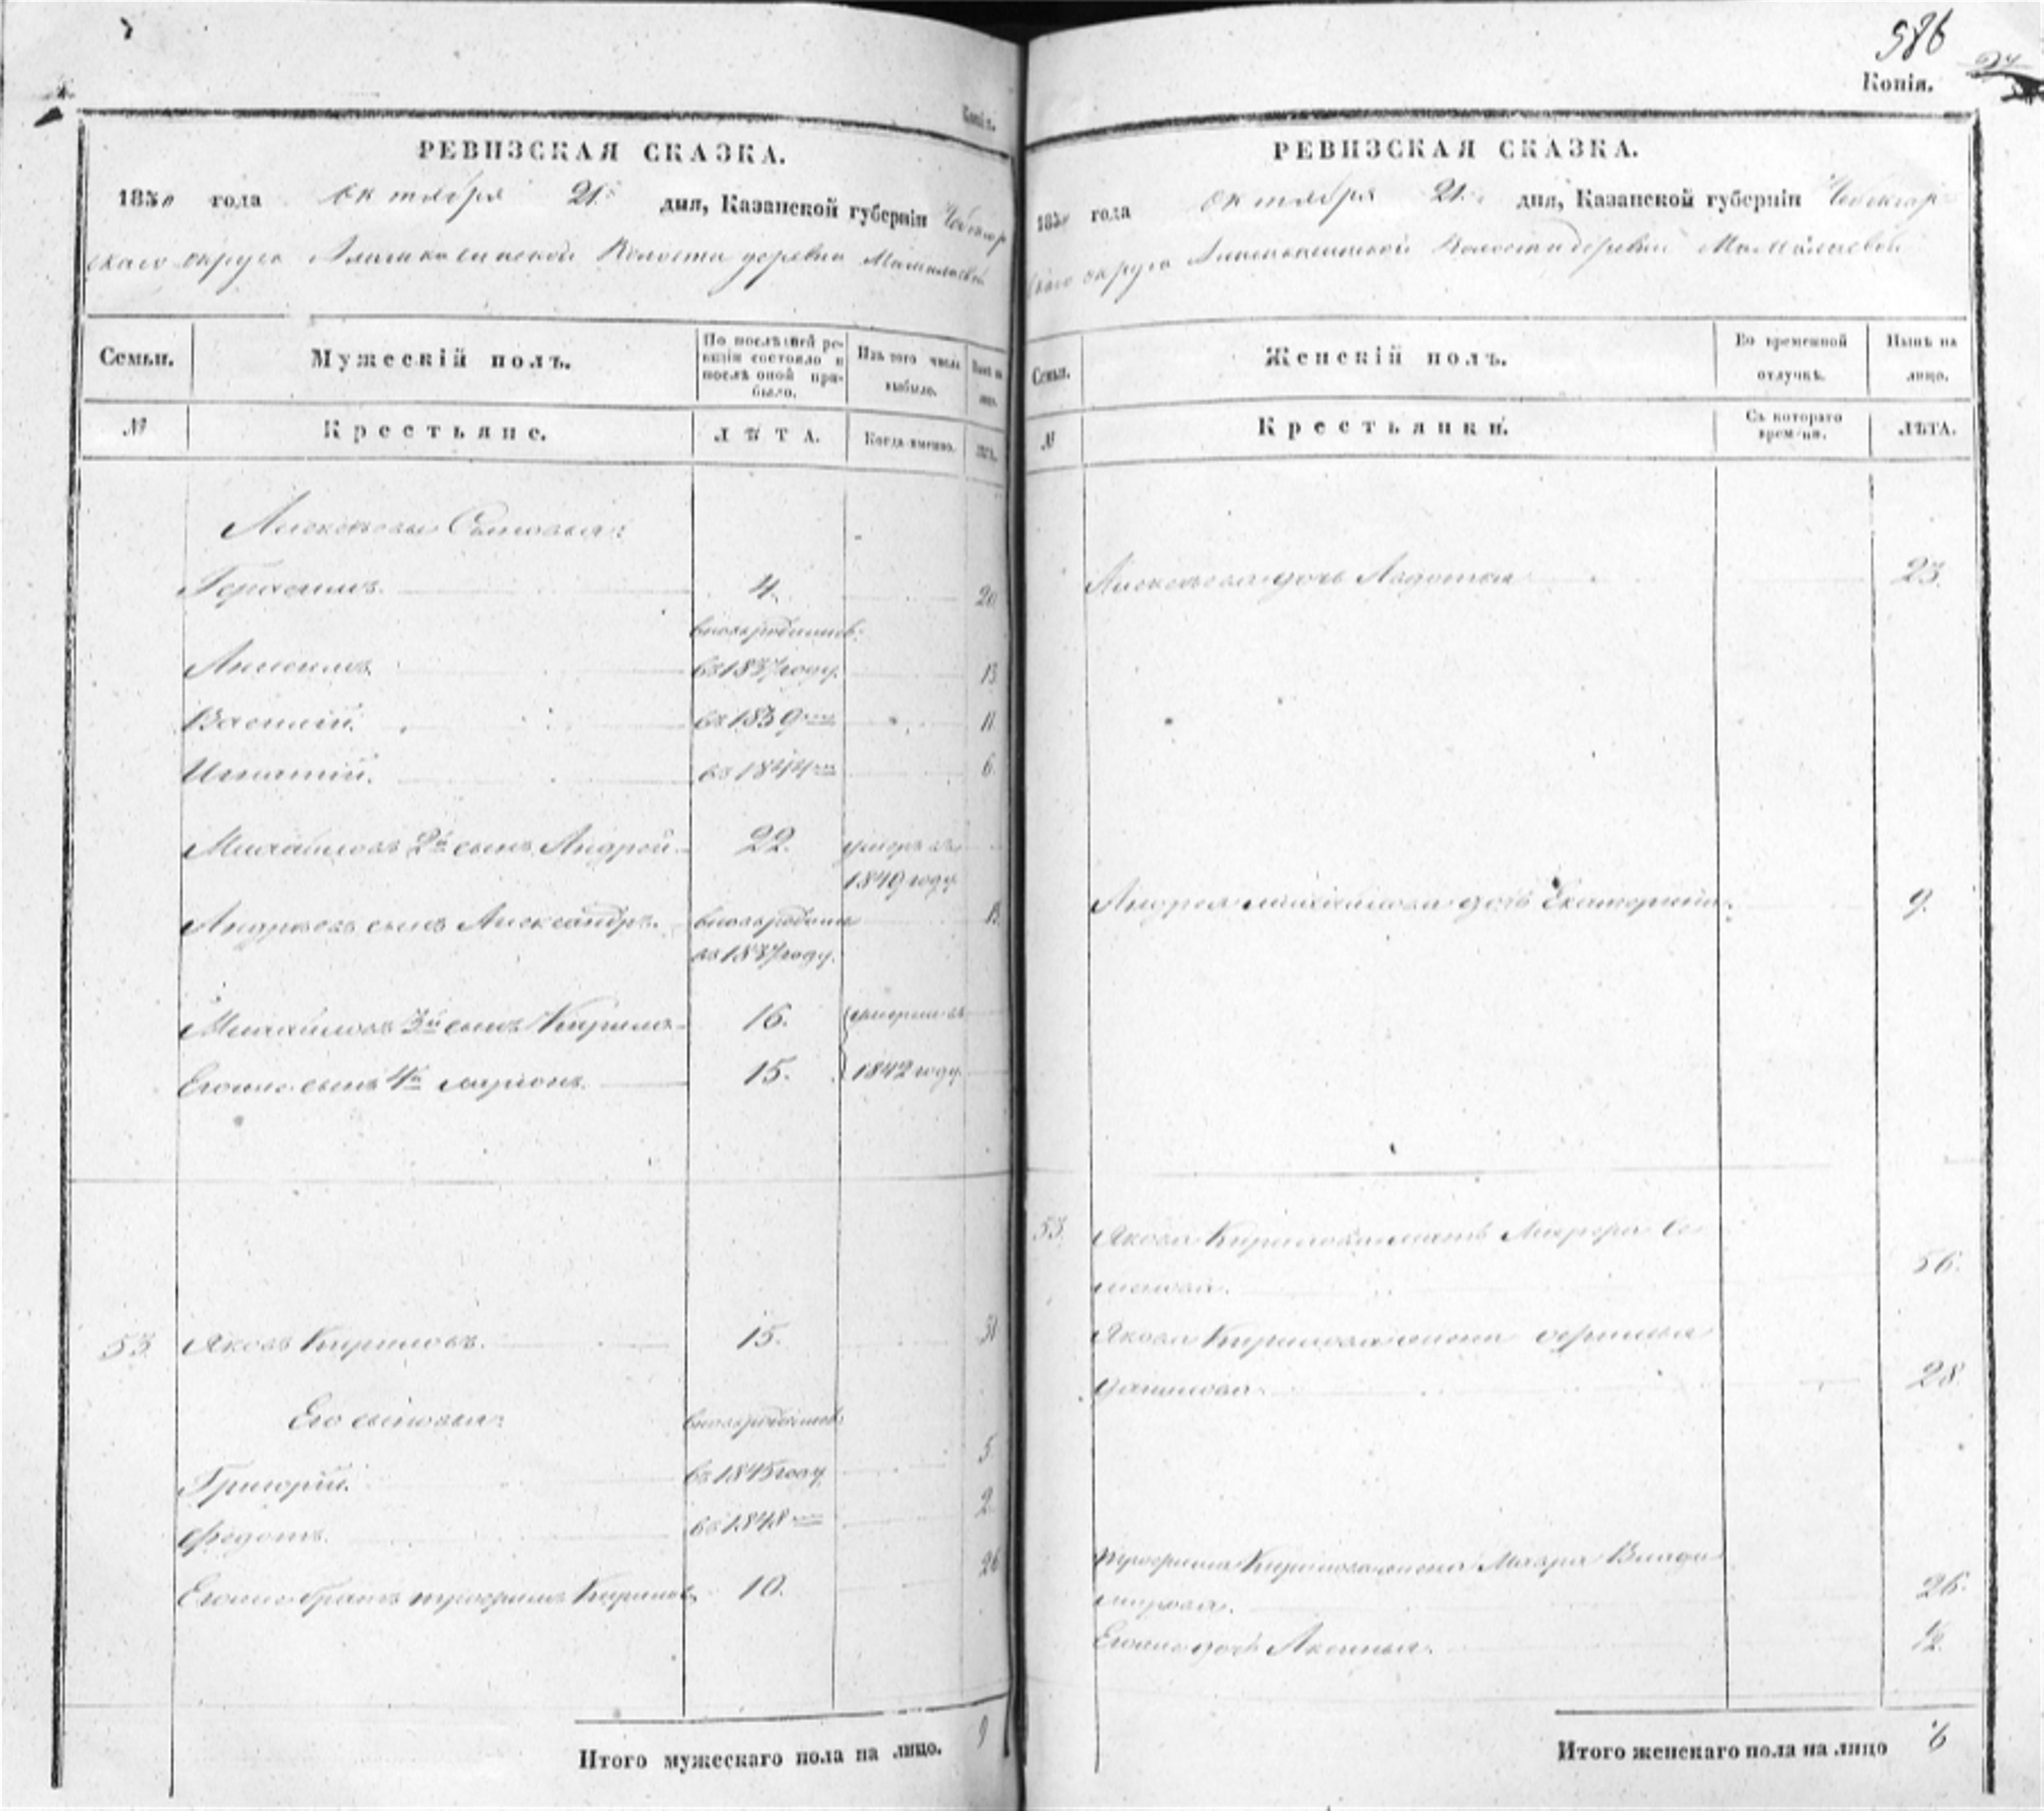 586
Копія.
РЕВИЗСКАЯ СКАЗКА.
1850 года октября 21 дня, Казанской губерніи Чебоксар
скаго округа Волости деревни
Семьи. Мужескій полъ. По послѣдней ре-
визіи состояло и
послѣ оной при-
было. Изъ того числа
выбыло. Нынѣ на
лицо.
№ Крестьяне. ЛѢТА. Когда именно. ЛѢТА.
Сыновья:
Герасимъ. 4. 20.
вновь рожденный
въ 1837 году. 13
Василій. въ 1839 11
Игнатій. въ 1844 6.
Михайловъ 2й сынъ Андрей 22. умеръ въ
1849 году
Андреевъ сынъ Александръ. вновь рожден
въ 1837 году. 13.
Михайловъ 3й сынъ Кирило 16. умерли въ
Егоже сынъ 4й 15. 1842 году.
53. Яковъ Кириловъ. 15. 31
Его сыновья: вновь рожденные
Григорій. въ 1845 году 5
Федотъ. въ 1848 2
Егоже братъ Трофимъ Кирилов 10. 26
Итого мужескаго пола на лицо. 9
РЕВИЗСКАЯ СКАЗКА.
1850 года октября 21 дня, Казанской губерніи Чебоксар
скаго округа Волости деревни
Семьи. Женскій полъ. Во временной
отлучкѣ. Нынѣ на
лицо.
№ Крестьянки. Съ котораго
времени. ЛѢТА.
дочь Авдотья 23.
Андрея Михайлова дочь Екатерина 9.
53. Якова Кирилова мать Се
менова. 56.
Якова Кирилова жена
Данилова. 28.
Трофима Кирилова жена Мавра Влади
мирова. 26.
Егоже дочь Аксинья. 1/2.
Итого женскаго пола на лицо 6